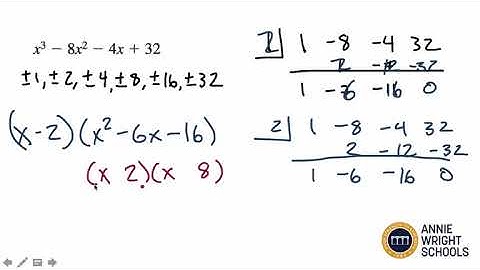 x³ − 8x² − 4x + 32
±1, ±2, ±4, ±8, ±16, ±32
(x-2)(x²-6x-16)
(x 2)(x 8)
1 -8 -4 32
-32
1 -16 0
2 1 -8 -4 32
2 -12 -32
1 -6 -16 0
ANNIE
WRIGHT
SCHOOLS